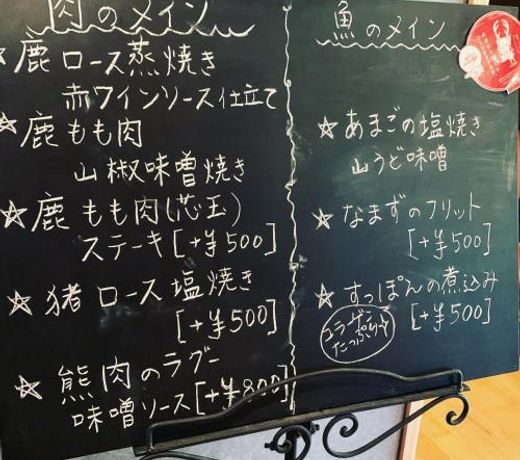 肉のメイン
☆鹿ロース蒸焼き
赤ワインソース仕立て
☆鹿もも肉
山椒味噌焼き
☆鹿もも肉(芯玉)
ステーキ[+¥500]
☆猪ロース塩焼き
[+¥500]
☆熊肉のラグー
味噌ソース[+¥800]
魚のメイン
☆あまごの塩焼き
山うど味噌
☆なまずのフリット
[+¥500]
☆すっぽんの煮込み
[+¥500]
コラーゲン
たっぷり